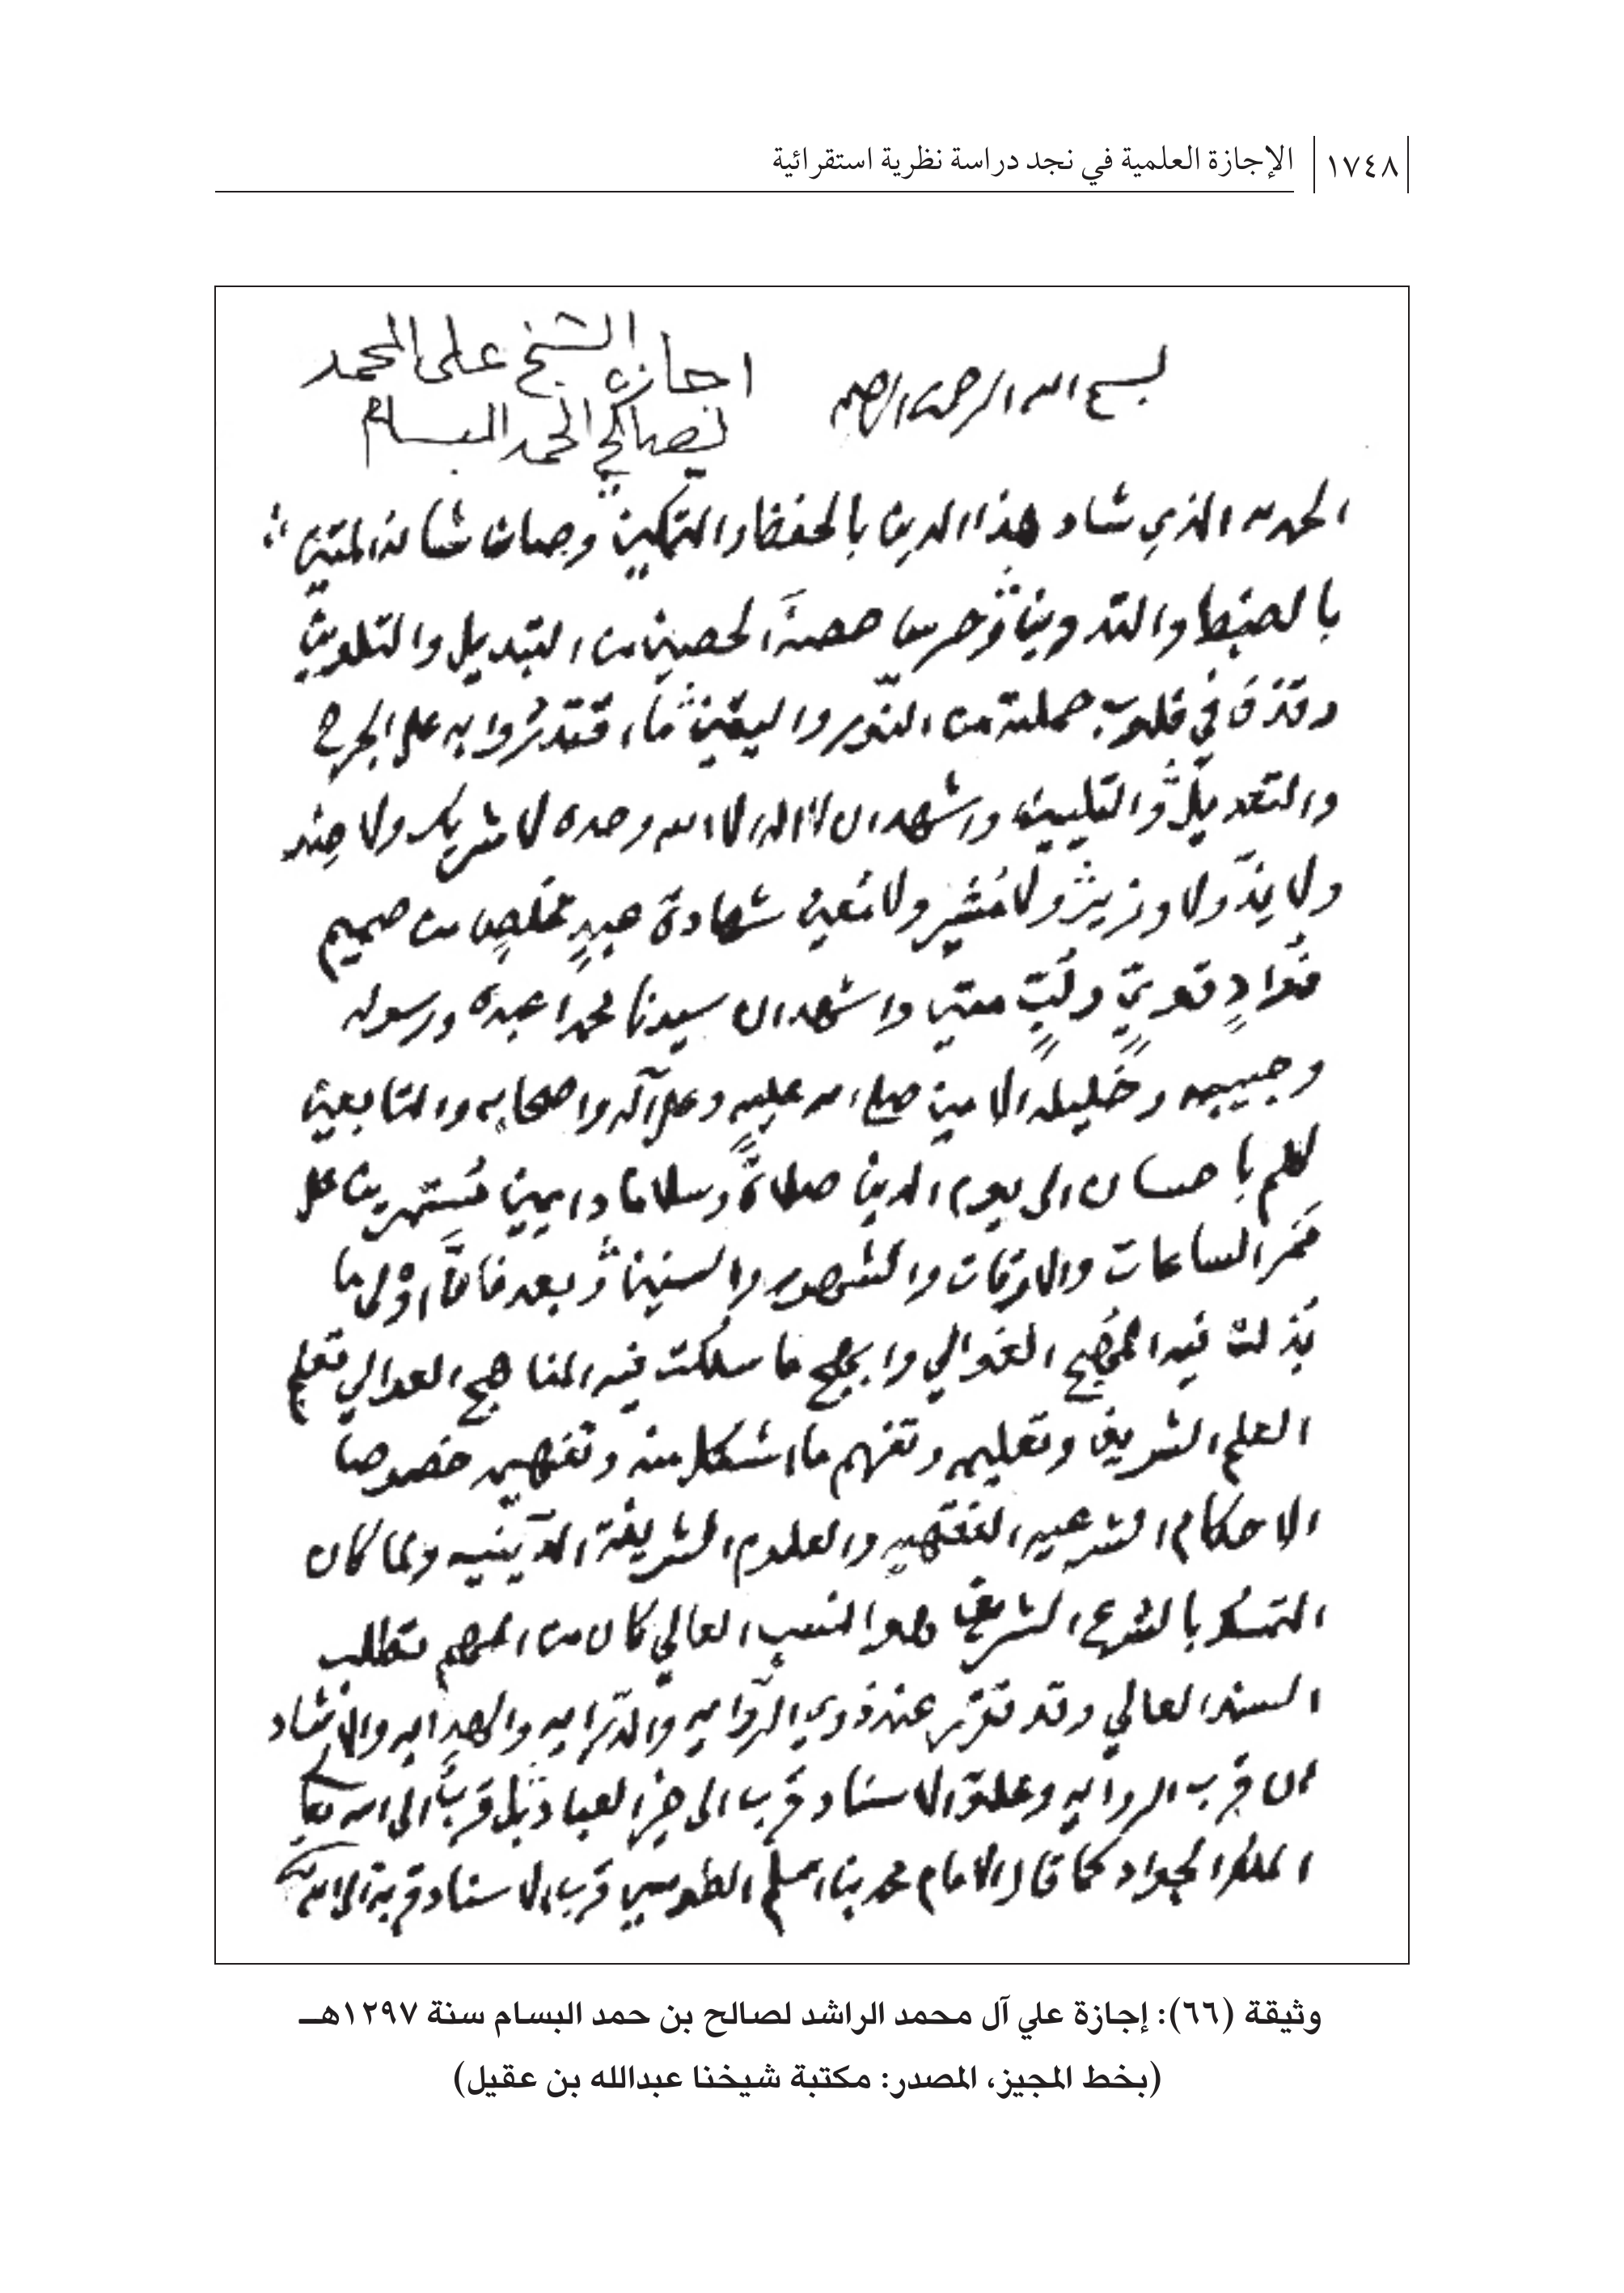 ١٧٤٨ الإجازة العلمية في نجد دراسة نظرية استقرائية
بسم الله الرحمن الرحيم
اجازة الشيخ على المحمد
لصالح الحمد البسام
الحمد لله الذي شاد هذا الدين بالحفظ والتمكين وصان شانه المتين
بالضبط والتدوين وحرس حصنه الحصين من التبديل والتلوين
وقذف في قلوب حملته من النور واليقين ما اقتدروا به على الجرح
والتعديل والتليين واشهد ان لا اله الا الله وحده لا شريك ولا ضد
ولا ند ولا وزير ولا مشير ولا معين شهادة عبد مخلص من صميم
فواد قوي ولب متين واشهد ان سيدنا محمدا عبده ورسوله
وحبيبه وخليله الامين صلى الله عليه وعلى آله واصحابه والتابعين
لهم باحسان الى يوم الدين صلاة وسلاما دايمين مستمرين على
ممر الساعات والاوقات والشهور والسنين وبعد فاما اولى ما
بذلت فيه المهج الغوالي وابهج ما سلكت فيه المناهج العوالي تعلم
العلم الشريف وتعليمه وتفهم ما اشكل منه وتفهيمه خصوصا
الاحكام الشرعيه الفقهيه والعلوم الشريفة الدينيه ولما كان
التمسك بالشرع الشريف هو النسب العالي كان من المهم تطلب
السند العالي وقد تقرر عند ذوي الروايه والدرايه والهدايه والارشاد
ان قرب الروايه وعلو الاسناد قرب الى خير العباد بل قرب الى الله تعالى
الملك الجواد كما قال الامام محمد بن اسلم الطوسي قرب الاسناد قربة الى الله
وثيقة (٦٦): إجازة علي آل محمد الراشد لصالح بن حمد البسام سنة ١٢٩٧هـ
(بخط المجيز، المصدر: مكتبة شيخنا عبدالله بن عقيل)